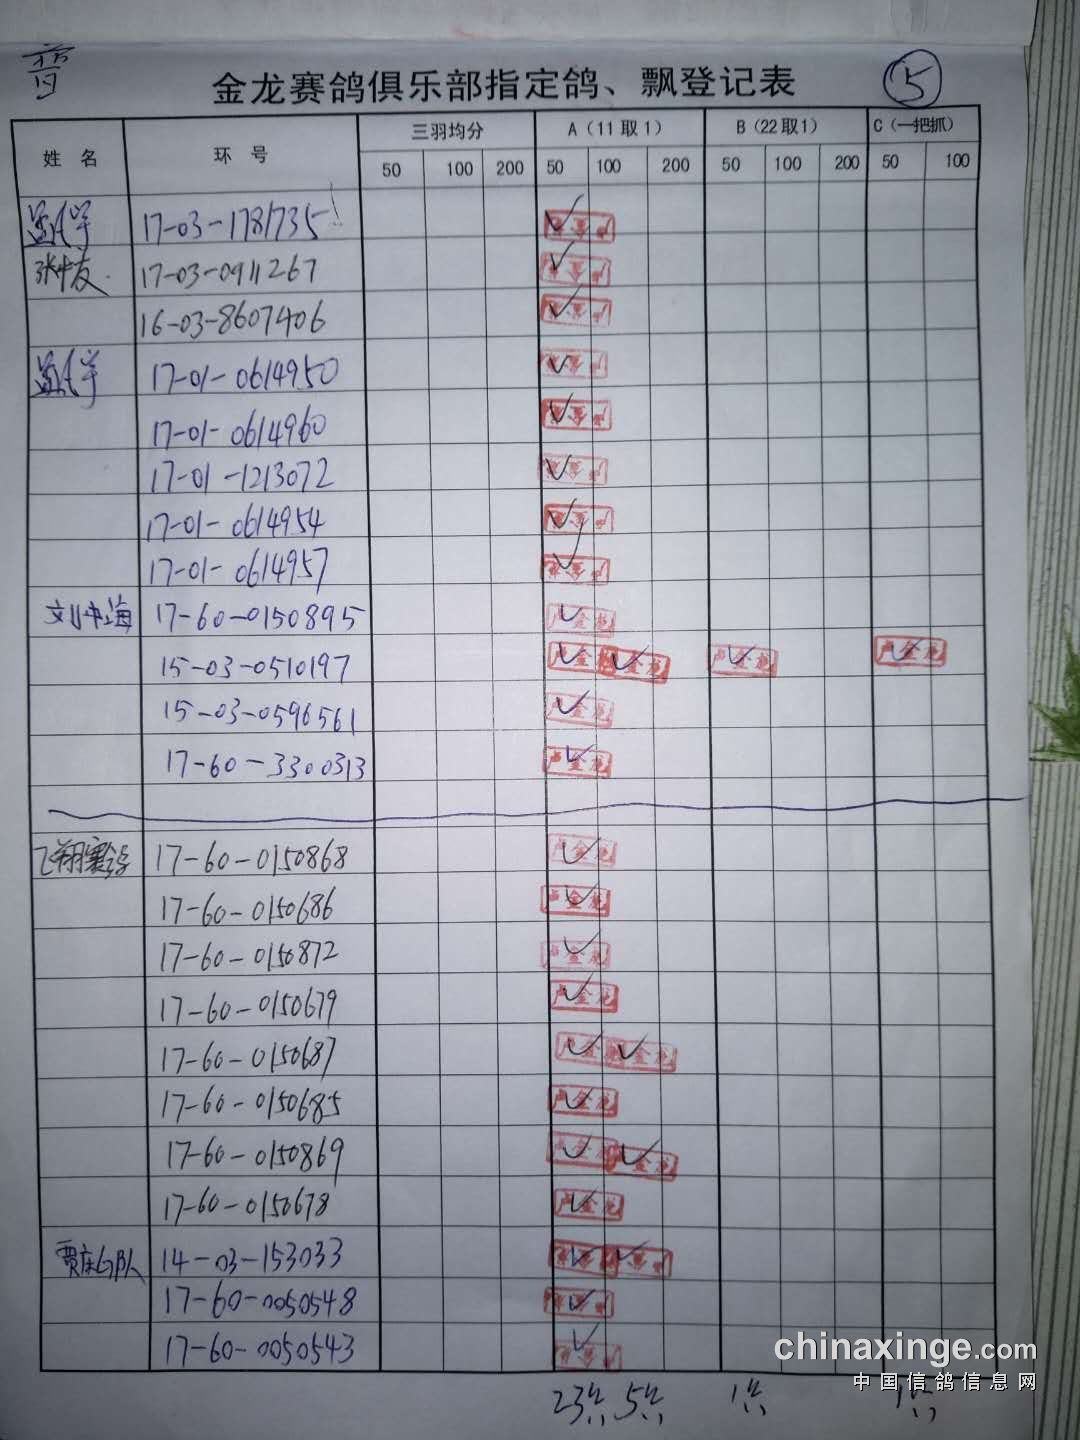 ⑤
金龙赛鸽俱乐部指定鸽、飘登记表
姓 名 环 号 三羽均分 A（11取1） B（22取1） C（一把抓）
50 100 200 50 100 200 50 100 200 50 100
17-03-1781735
17-03-0911267
16-03-8607406
17-01-0614950
17-01-0614960
17-01-1213072
17-01-0614954
17-01-0614957
刘中海 17-60-0150895
15-03-0510197
15-03-0596561
17-60-3300313
飞翔赛鸽 17-60-0150868
17-60-0150686
17-60-0150872
17-60-0150679
17-60-0150687
17-60-0150685
17-60-0150869
17-60-0150678
14-03-153033
17-60-0050548
17-60-0050543
23 5 1 1
chinaxinge.com
中国信鸽信息网